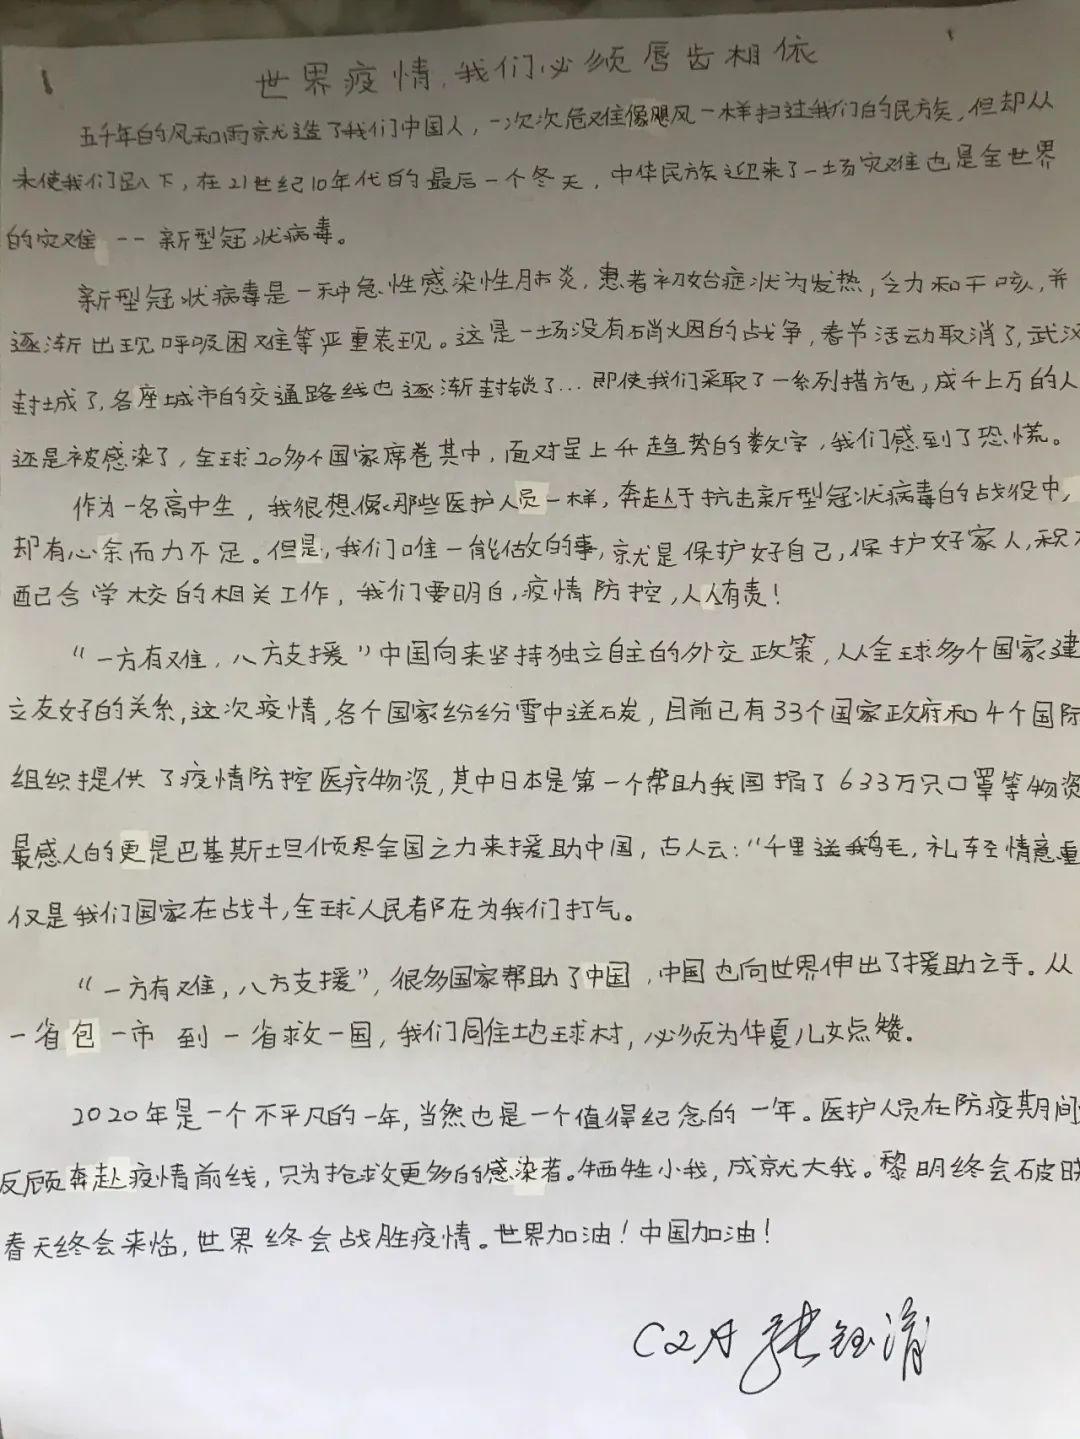 世界疫情，我们必须唇齿相依
五千年的风和雨就造了我们中国人，一次次危难像飓风一样扫过我们的民族，但却从
未使我们趴下，在21世纪10年代的最后一个冬天，中华民族迎来了一场灾难也是全世界
的灾难--新型冠状病毒。
新型冠状病毒是一种急性感染性肺炎，患者初始症状为发热，乏力和干咳，并
逐渐出现呼吸困难等严重表现。这是一场没有硝烟的战争，春节活动取消了，武汉
封城了，各座城市的交通路线也逐渐封锁了...即使我们采取了一系列措施，成千上万的人
还是被感染了，全球20多个国家席卷其中，面对呈上升趋势的数字，我们感到了恐慌。
作为一名高中生，我很想像那些医护人员一样，奔赴于抗击新型冠状病毒的战役中，
却有心余而力不足。但是，我们唯一能做的事，就是保护好自己，保护好家人，积
配合学校的相关工作，我们要明白，疫情防控，人人有责！
“一方有难，八方支援”中国向来坚持独立自主的外交政策，从全球多个国家建
立友好的关系，这次疫情，各个国家纷纷雪中送炭，目前已有33个国家政府和4个国际
组织提供了疫情防控医疗物资，其中日本是第一个帮助我国捐了633万只口罩等物资
最感人的更是巴基斯坦倾尽全国之力来援助中国，古人云：“千里送鹅毛，礼轻情意重
仅是我们国家在战斗，全球人民都在为我们打气。
“一方有难，八方支援”，很多国家帮助了中国，中国也向世界伸出了援助之手。从
一省包一市到一省救一国，我们同住地球村，必须为华夏儿女点赞。
2020年是一个不平凡的一年，当然也是一个值得纪念的一年。医护人员在防疫期间
反顾奔赴疫情前线，只为抢救更多的感染者。牺牲小我，成就大我。黎明终会破晓
春天终会来临，世界终会战胜疫情。世界加油！中国加油！
C2月 张钰清